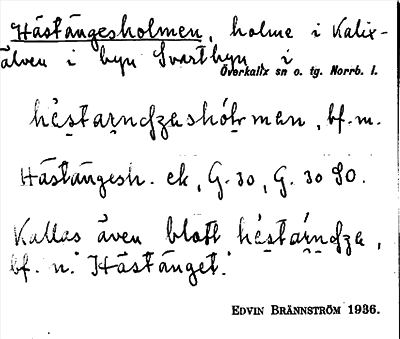 Hästängesholmen, holme i Kalix-
älven i byn Svartbyn i
Överkalix sn o. tg. Norrb. l.
hę́starnʤashólrman, bf. m.
Hästängesh. ek, G. 30, G. 30 SO.
Kallas även blott hę́stárnʤa,
bf. n. "Hästänget."
EDVIN BRÄNNSTRÖM 1936.